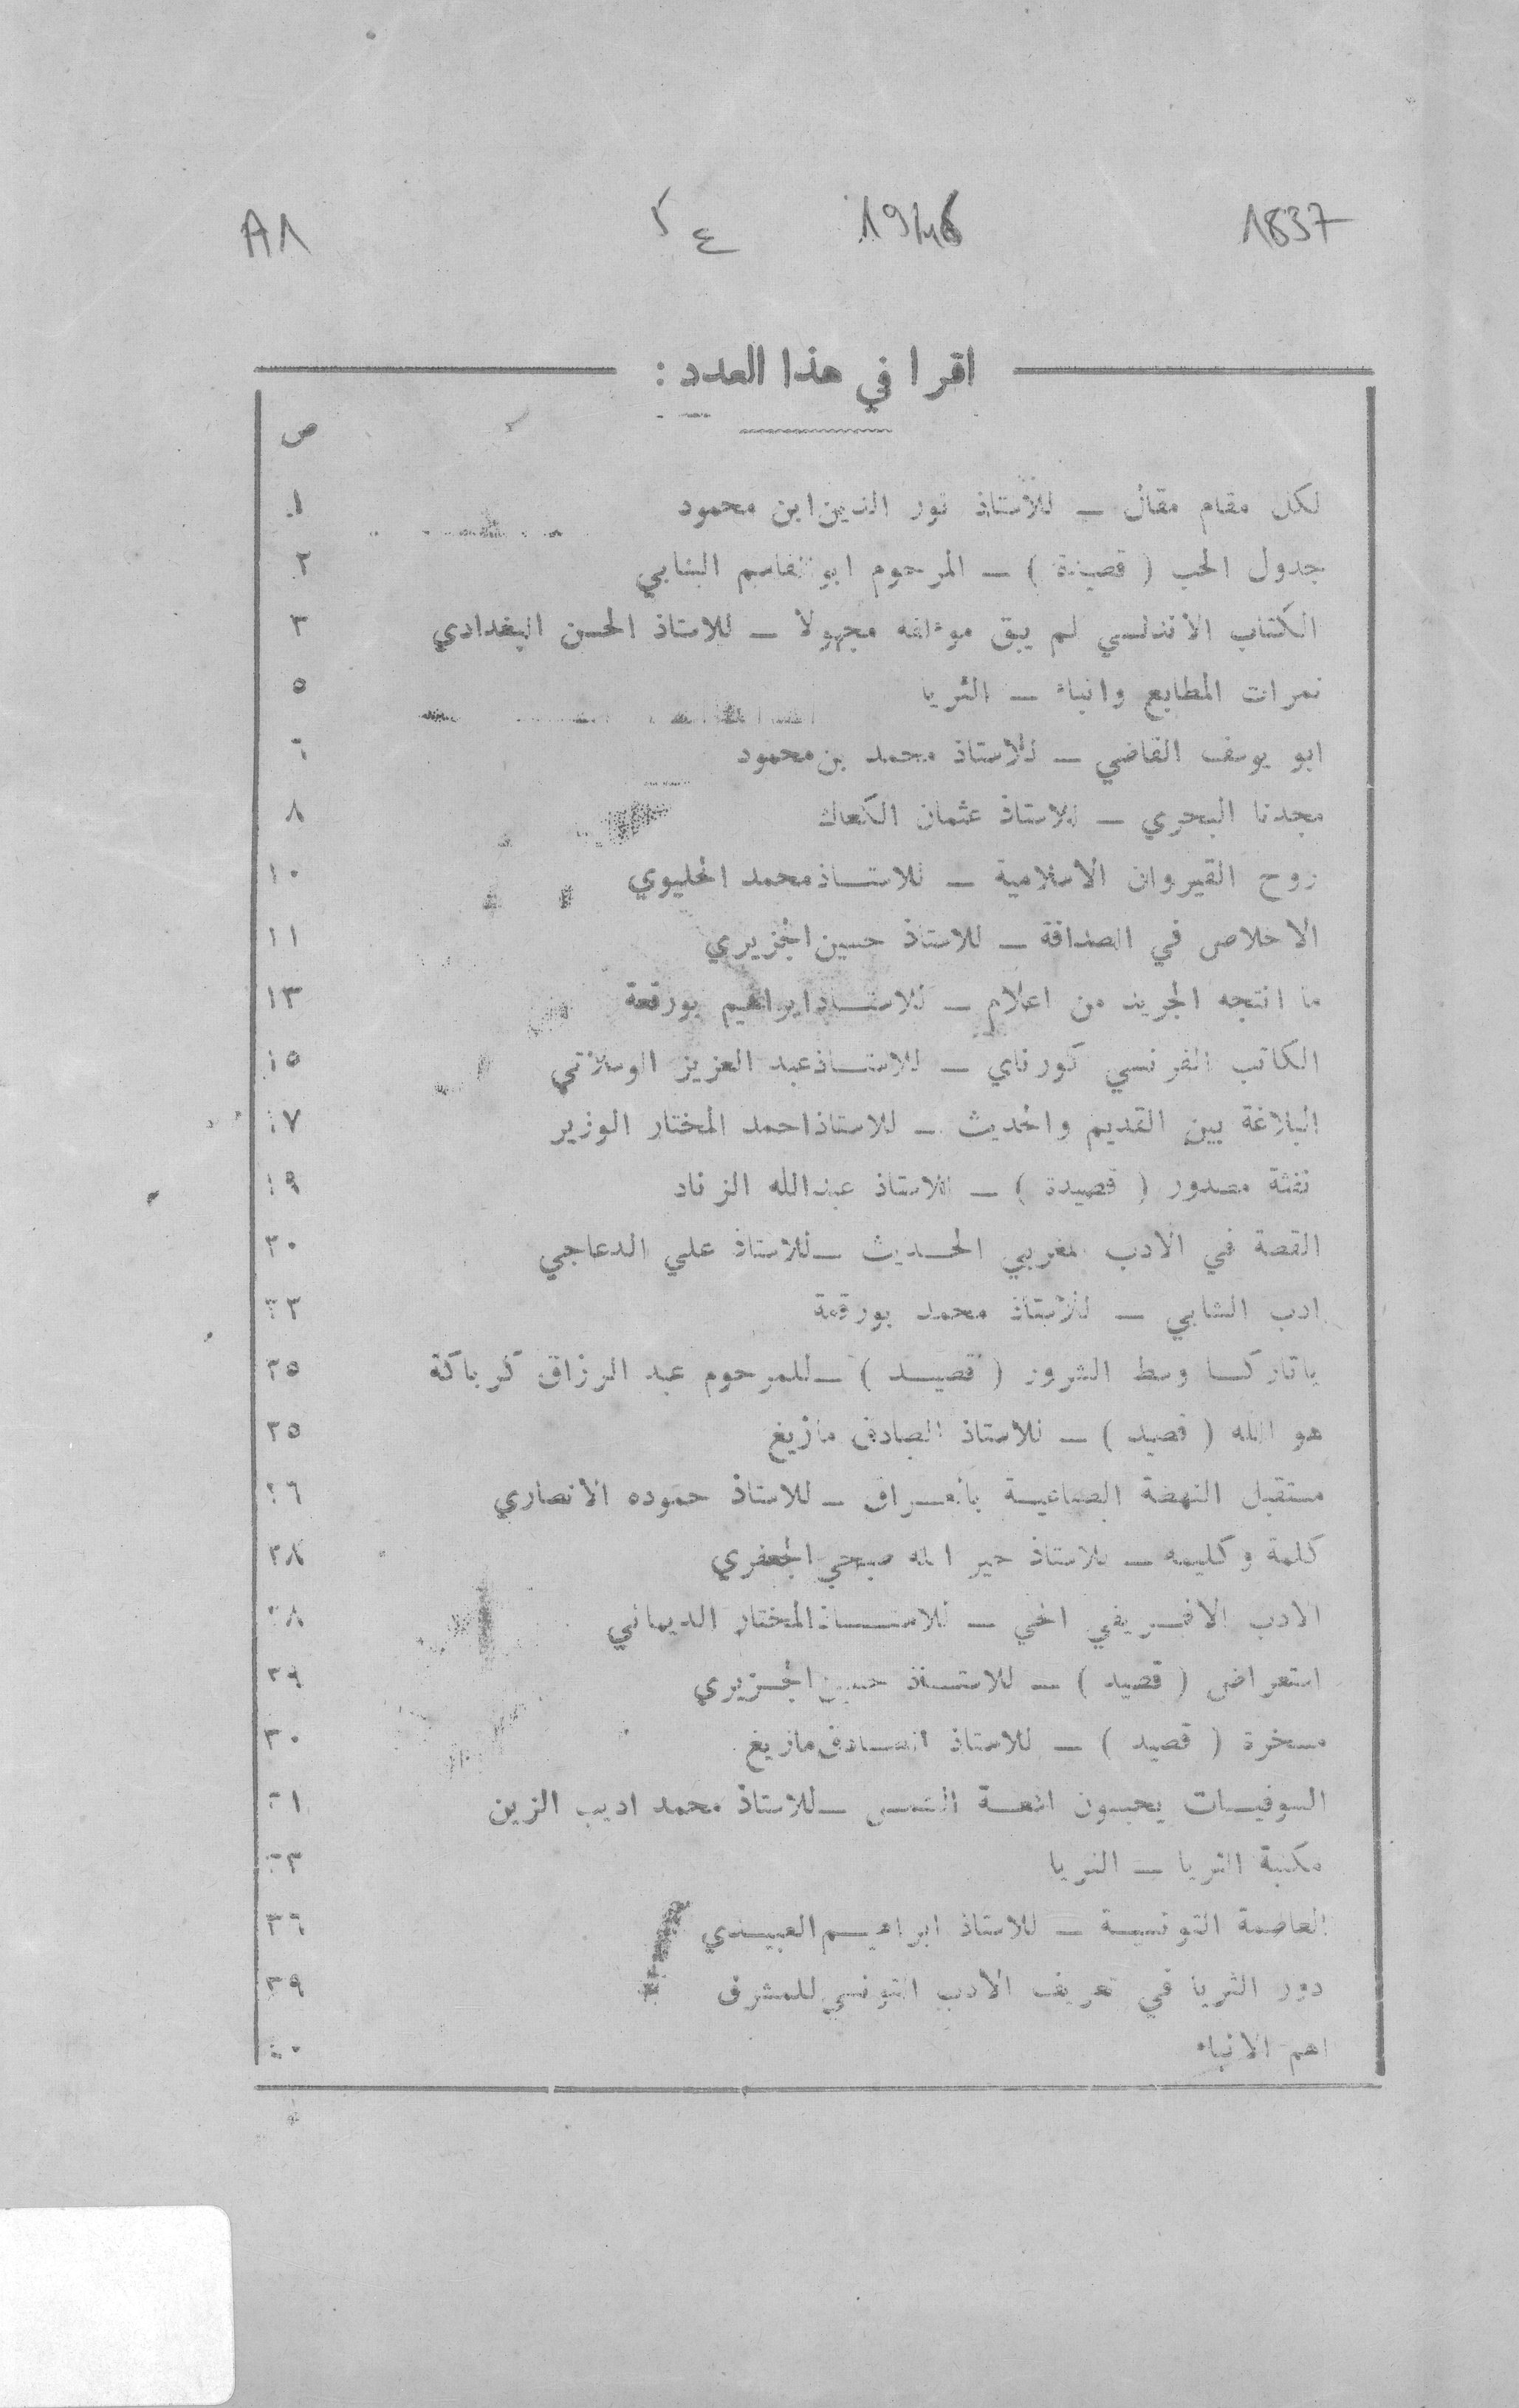 1837 1946 ٤ A1
اقرا في هذا العدد :
ص
لكل مقام مقال – للأستاذ نور الدين ابن محمود ١
جدول الحب ( قصيدة ) – المرحوم ابو القاسم الشابي ٢
الكتاب الاندلسي لم يبق موءلفه مجهولا – للاستاذ الحسن البغدادي ٣
ثمرات المطابع وانباء – الثريا ٥
ابو يوسف القاضي – للاستاذ محمد بن محمود ٦
مجدنا البحري – للاستاذ عثمان الكعاك ٨
روح القيروان الاسلامية – للاستاذ محمد الحليوي ١٠
الاخلاص في الصداقة – للاستاذ حسين الجزيري ١١
ما انتجه الجريد من اعلام – للاستاذ ابراهيم بورقعة ١٣
الكاتب الفرنسي كورناي – للاستاذ عبد العزيز الوسلاتي ١٥
البلاغة بين القديم والحديث – للاستاذ احمد المختار الوزير ١٧
نفثة مصدور ( قصيدة ) – للاستاذ عبد الله الزناد ١٩
القصة في الادب المغربي الحديث – للاستاذ علي الدعاجي ٢٠
ادب الشابي – للاستاذ محمد بورقعة ٢٣
يا تاركا وسط الشرور ( قصيد ) – للمرحوم عبد الرزاق كرباكة ٢٥
هو الله ( قصيد ) – للاستاذ الصادق مازيغ ٢٥
مستقبل النهضة الصناعية بالعراق – للاستاذ حموده الانصاري ٢٦
كلمة وكليمه – للاستاذ خير الله صبحي الجعفري ٢٨
الادب الافريقي الحي – للاستاذ المختار الديماني ٢٨
استعراض ( قصيد ) – للاستاذ حسين الجزيري ٢٩
مسخرة ( قصيد ) – للاستاذ الصادق مازيغ ٣٠
السوفيات يحبسون اشعة الشمس – للاستاذ محمد اديب الزين ٣١
مكتبة الثريا – الثريا ٣٣
العاصمة التونسية – للاستاذ ابراهيم العبيدي ٣٦
دور الثريا في تعريف الادب التونسي للمشرق ٣٩
اهم الانباء ٤٠